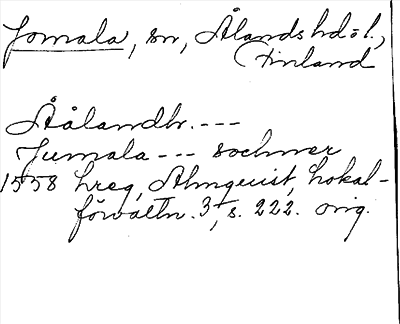 Jomala, sn, Ålands hd o l.,
Finland
Åålandh. ---
Jumala --- sochner
1558 hreg, Almquist, Lokal-
förvaltn. 3, s. 222. orig.